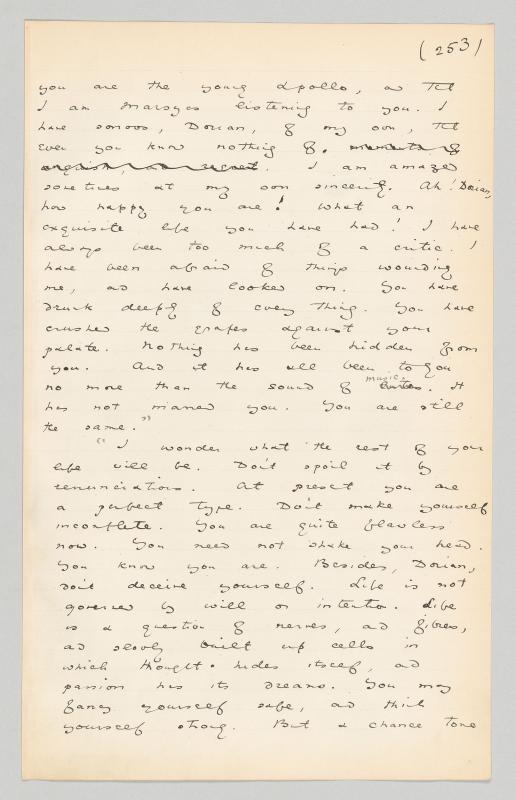 (253)
you are the young Apollo, and that
I am Marsyas listening to you. I
have sorrows, Dorian, of my own, that
even you know nothing of. moments of
anguish, and regret. I am amazed
sometimes at my own sincerity. Ah! Dorian,
how happy you are! What an
exquisite life you have had! I have
always been too much of a critic. I
have been afraid of things wounding
me, and have looked on. You have
drunk deeply of every thing. You have
crushed the grapes against your
palate. Nothing has been hidden from
you. And it has all been to you
no more than the sound of music. It
has not marred you. You are still
the same."
"I wonder what the rest of your
life will be. Don't spoil it by
renunciations. At present you are
a perfect type. Don't make yourself
incomplete. You are quite flawless
now. You need not shake your head.
You know you are. Besides, Dorian,
don't deceive yourself. Life is not
governed by will or intention. Life
is a question of nerves, and fibres,
and slowly built up cells in
which thought hides itself, and
passion has its dreams. You may
fancy yourself safe, and think
yourself strong. But a chance tone